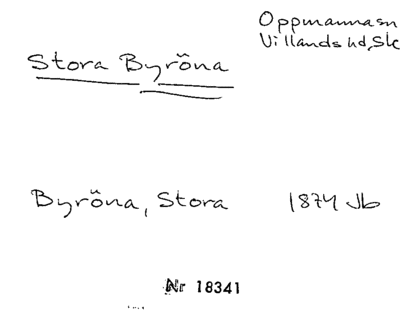 Oppmanna sn
Villands hd, Sk
Stora Byröna
Byröna, Stora 1874 Jb
Nr 18341